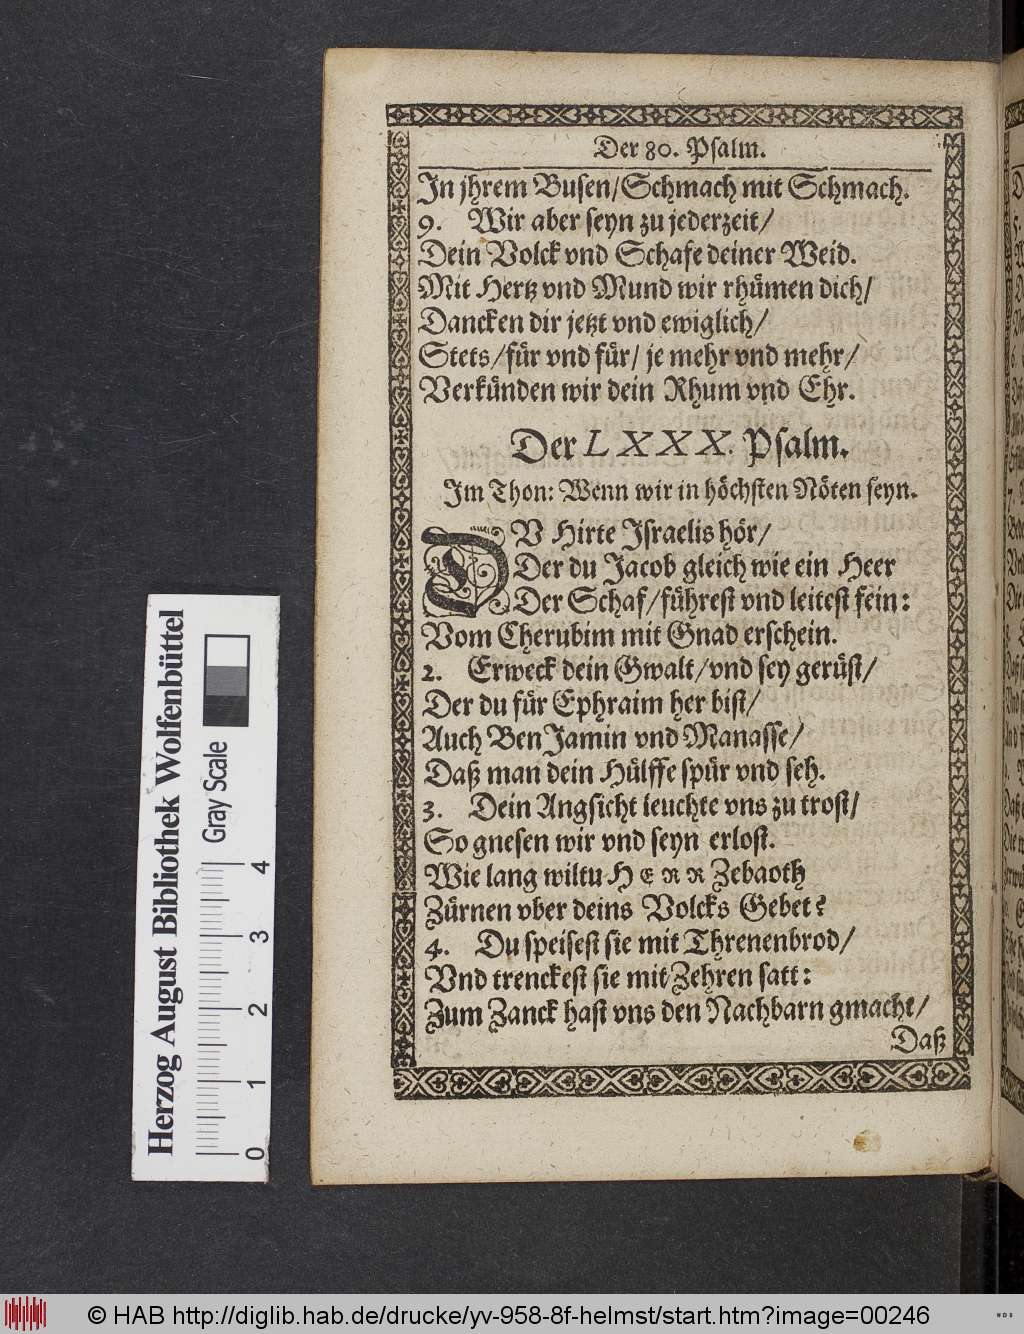 Der 80. Psalm.
In jhrem Busen/Schmach mit Schmach.
9. Wir aber seyn zu jederzeit/
Dein Volck vnd Schafe deiner Weid.
Mit Hertz vnd Mund wir rhümen dich/
Dancken dir jetzt vnd ewiglich/
Stets/für vnd für/ je mehr vnd mehr/
Verkünden wir dein Rhum vnd Ehr.
Der LXXX. Psalm.
Im Thon: Wenn wir in höchsten Nöten seyn.
DV Hirte Israelis hör/
Der du Jacob gleich wie ein Heer
Der Schaf/führest vnd leitest fein:
Vom Cherubim mit Gnad erschein.
2. Erweck dein Gwalt/vnd sey gerüst/
Der du für Ephraim her bist/
Auch BenJamin vnd Manasse/
Daß man dein Hülffe spür vnd seh.
3. Dein Angsicht leuchte vns zu trost/
So gnesen wir vnd seyn erlost.
Wie lang wiltu HERR Zebaoth
Zürnen vber deins Volcks Gebet?
4. Du speisest sie mit Threnenbrod/
Vnd trenckest sie mit Zehren satt:
Zum Zanck hast vns den Nachbarn gmacht/
Daß
Herzog August Bibliothek Wolfenbüttel
Gray Scale
0 1 2 3 4
© HAB http://diglib.hab.de/drucke/yv-958-8f-helmst/start.htm?image=00246